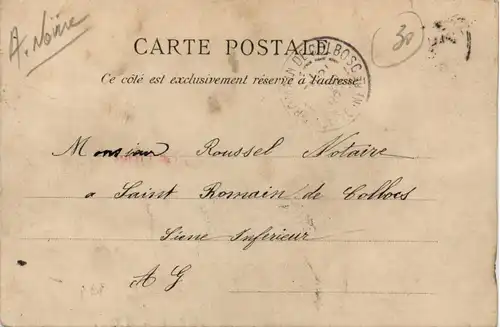 A. Noire
30
CARTE POSTALE
Ce côté est exclusivement réservé à l'adresse
Monsieur Roussel Notaire
a Saint Romain de Colboes
Siene Inferieur
A G